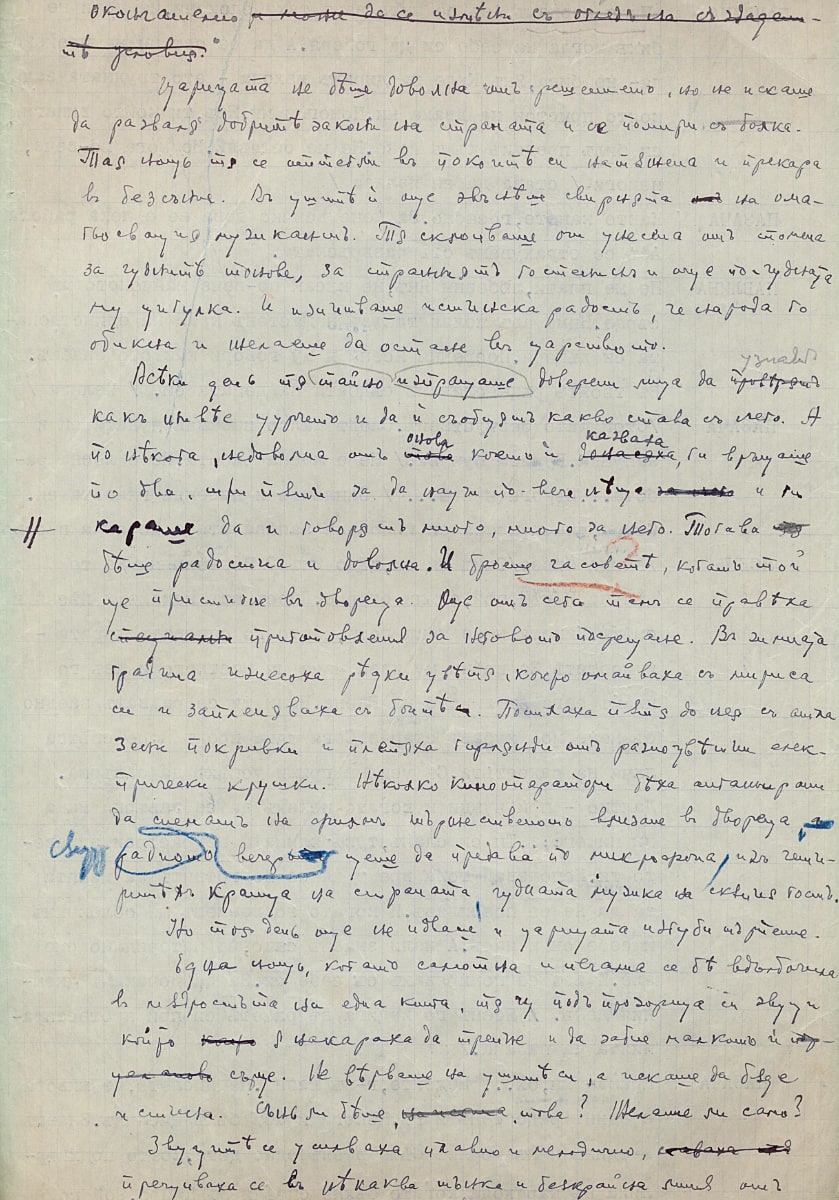 окончателно и може да се измѣни съ огледъ на създаде-
нитѣ условия."
Царицата не бѣше доволна отъ решението, но не искаше
да разваля добритѣ закони на страната и се помири съ болка.
Тая нощь тя се оттегли въ покоитѣ си натъжена и прекара
въ безсъние. Въ ушитѣ ѝ още звънѣше свирнята на ома-
гьосващия музикантъ. Тя склопваше очи унесена отъ спомена
за чуднитѣ тонове, за странниятъ гостенинъ и още по-чудната
му цигулка. И изпитваше истинска радость, че народа го
обикна и желаеше да остане въ царството.
Всѣки день тя тайно изпращаше доверени лица да провѣрятъ узнаятъ
какъ живѣе щурчето и да ѝ съобщятъ какво става съ него. А
по нѣкога, недоволна отъ това онова което ѝ донасяха казваха, ги връщаше
по два, три пѫти за да научи по-вече нѣщо за него и ги
караше да ѝ говорятъ много, много за него. Тогава тя
бѣше радостна и доволна. И броеше часоветѣ, когато той
ще пристигне въ двореца. Още отъ сега тамъ се правѣха
специални приготовления за неговото посрещане. Въ зимната
градина изнесоха рѣдки цвѣтя, които омайваха съ мириса
си и запленяваха съ боитѣ си. Постлаха пѫтя до нея съ атла-
зени покривки и плетяха гирлянди отъ разноцвѣтни елек-
трически крушки. Нѣколко кинооператори бѣха ангажирани
да снематъ на филмъ тържественото влизане въ двореца, а
радиото сѫщо вечерьта щеше да предава по микрофона, изъ чети-
ритѣхъ краища на страната, чудната музика на скѫпия гостъ.
Но тоя день още не идваше и царицата изгуби търпение.
Една нощь, когато самотна и печална се бѣ вдълбочила
въ мѫдростьта на една книга, тя чу подъ прозореца си звуци
които я накараха да трепне и да забие малкото ѝ
сърце. Не вѣрваше на ушитѣ си, а искаше да бѫде
истина. Сънь ли бѣше това? Желание ли само?
Звуцитѣ се усилваха плавно и мелодично,
пречупваха се въ нѣкаква тънка и безкрайна линия отъ